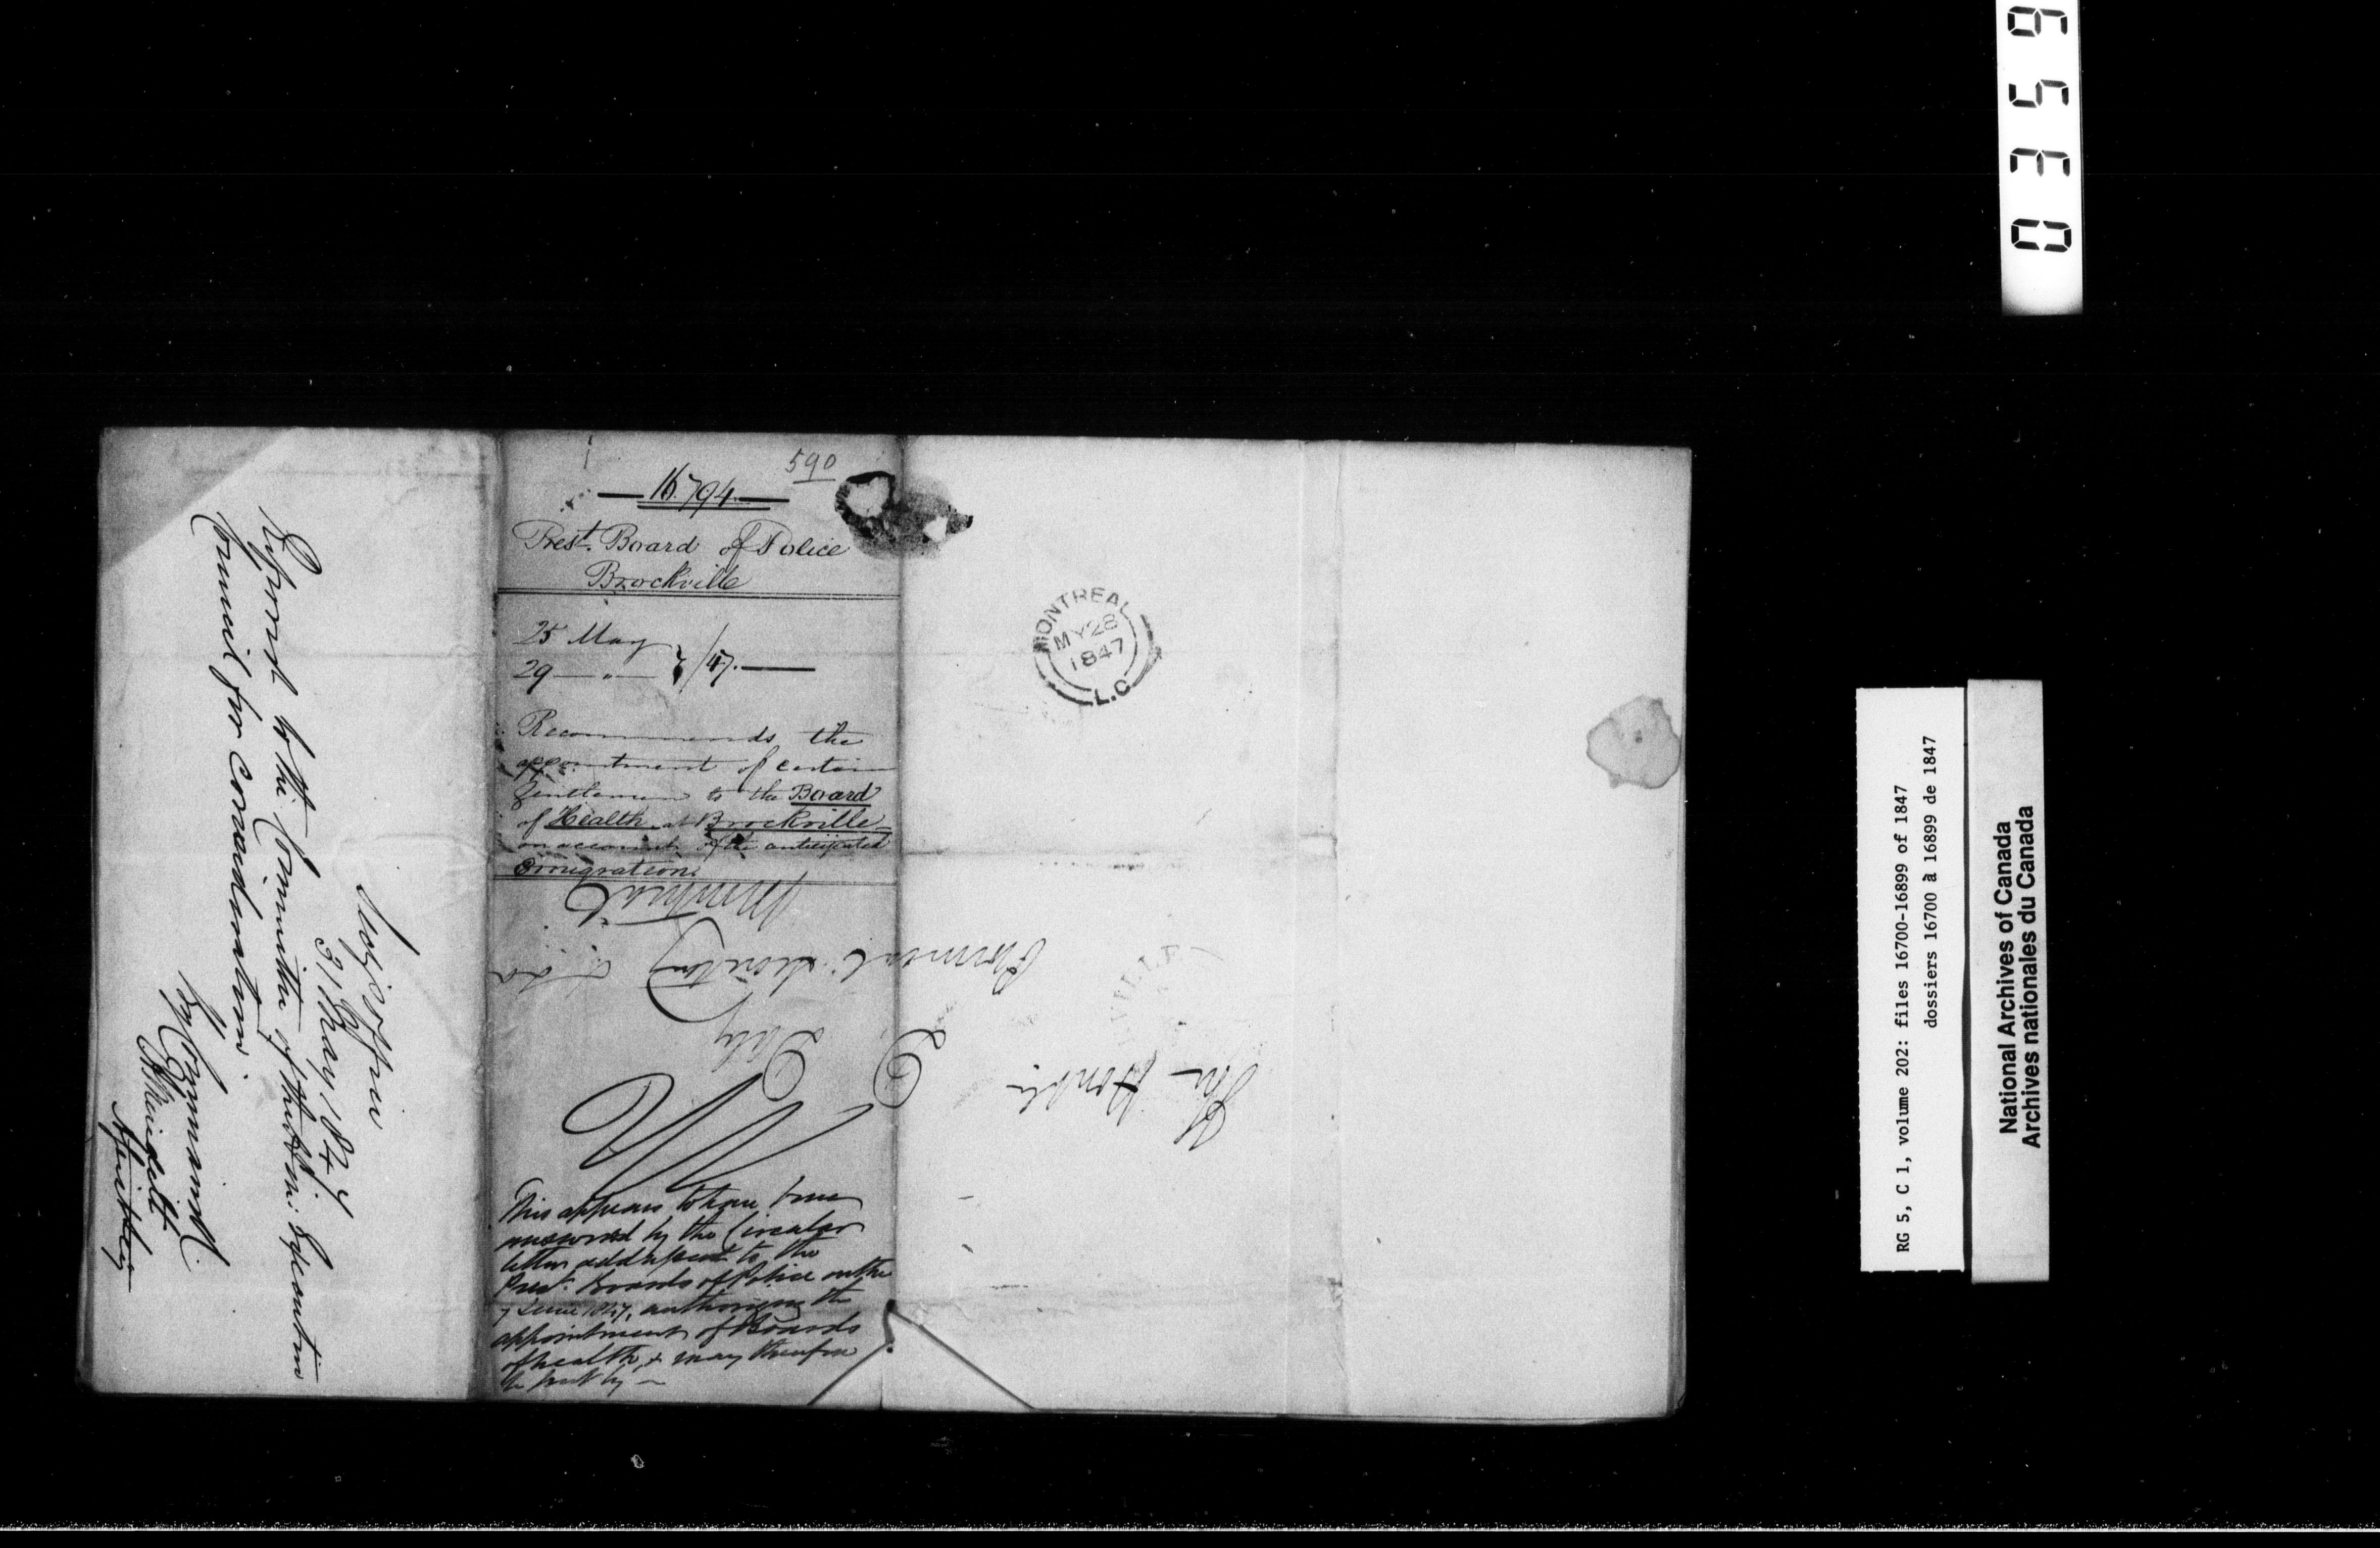 Secy's Office
31 May 1847
Referred to the Committee of the Hon: Executive
Council for consideration.
By Command.
590
16.794.
Prest. Board of Police
Brockville
25 May
29 — " — } /47.
Recommends the
appointment of certain
Gentlemen to the Board
of Health at Brockville
on account of the anticipated
Emigration.
This appears to have been
answered by the Circular
letter addressed to the
Prest. Boards of Police on the
7 June 1847, authorizing the
appointment of Boards
of health, & may therefore
be put by —
The Honble.
D. Daly
Provincial Secretary
Montreal
MONTREAL
MY 28
1847
L.C
VILLE
0359
RG 5, C 1, volume 202: files 16700-16899 of 1847
dossiers 16700 à 16899 de 1847
National Archives of Canada
Archives nationales du Canada